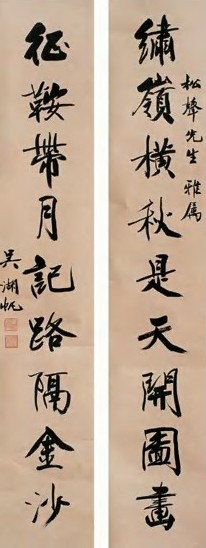 繡嶺橫秋是天開圖畫
松聲先生雅屬
征鞍帶月記路隔金沙
吳湖帆